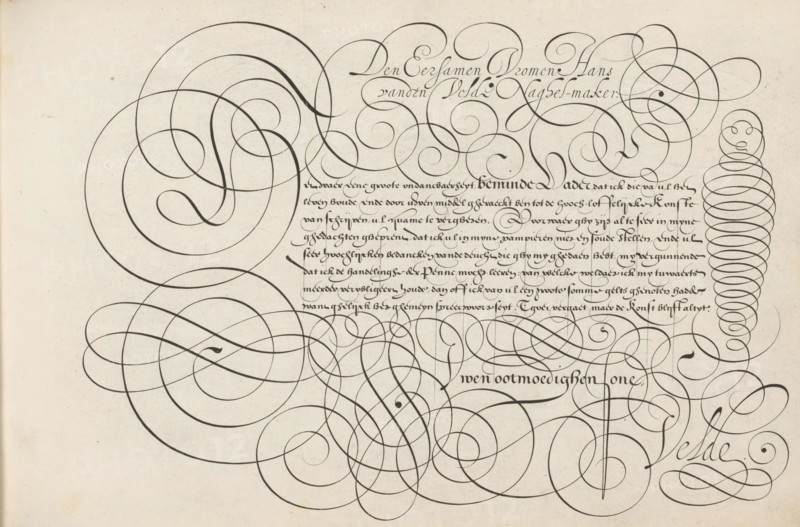 Den Eersamen Vromen Hans
vanden Velde Naghel-maker.
waer eene groote ondancbaerheyt, beminde Vader, dat ick die van ul
leven houde ende door uwen middel gheraeckt ben tot de hooch-loffelijcke Konste
van schrijven, ul quame te vergheten. Voorwaer ghy zijt al te seer in myne
ghedachten gheprent, dat ick ul in myne pampieren niet en soude stellen, ende ul
seer hoochlijcken bedancken vande deucht die ghy my ghedaen hebt, my vergunnende
dat ick de handelinghe der Penne moght leeren: van welcke weldaet ick my tuwaerts
meerder verobligeert houde dan oft ick van ul een groote somme gelts ghenoten hadde
want ghelijck het ghemeyn spreecwoort seyt, T goet vergaet maer de Konst blijft altyt.
Uwen ootmoedighen sone
Velde